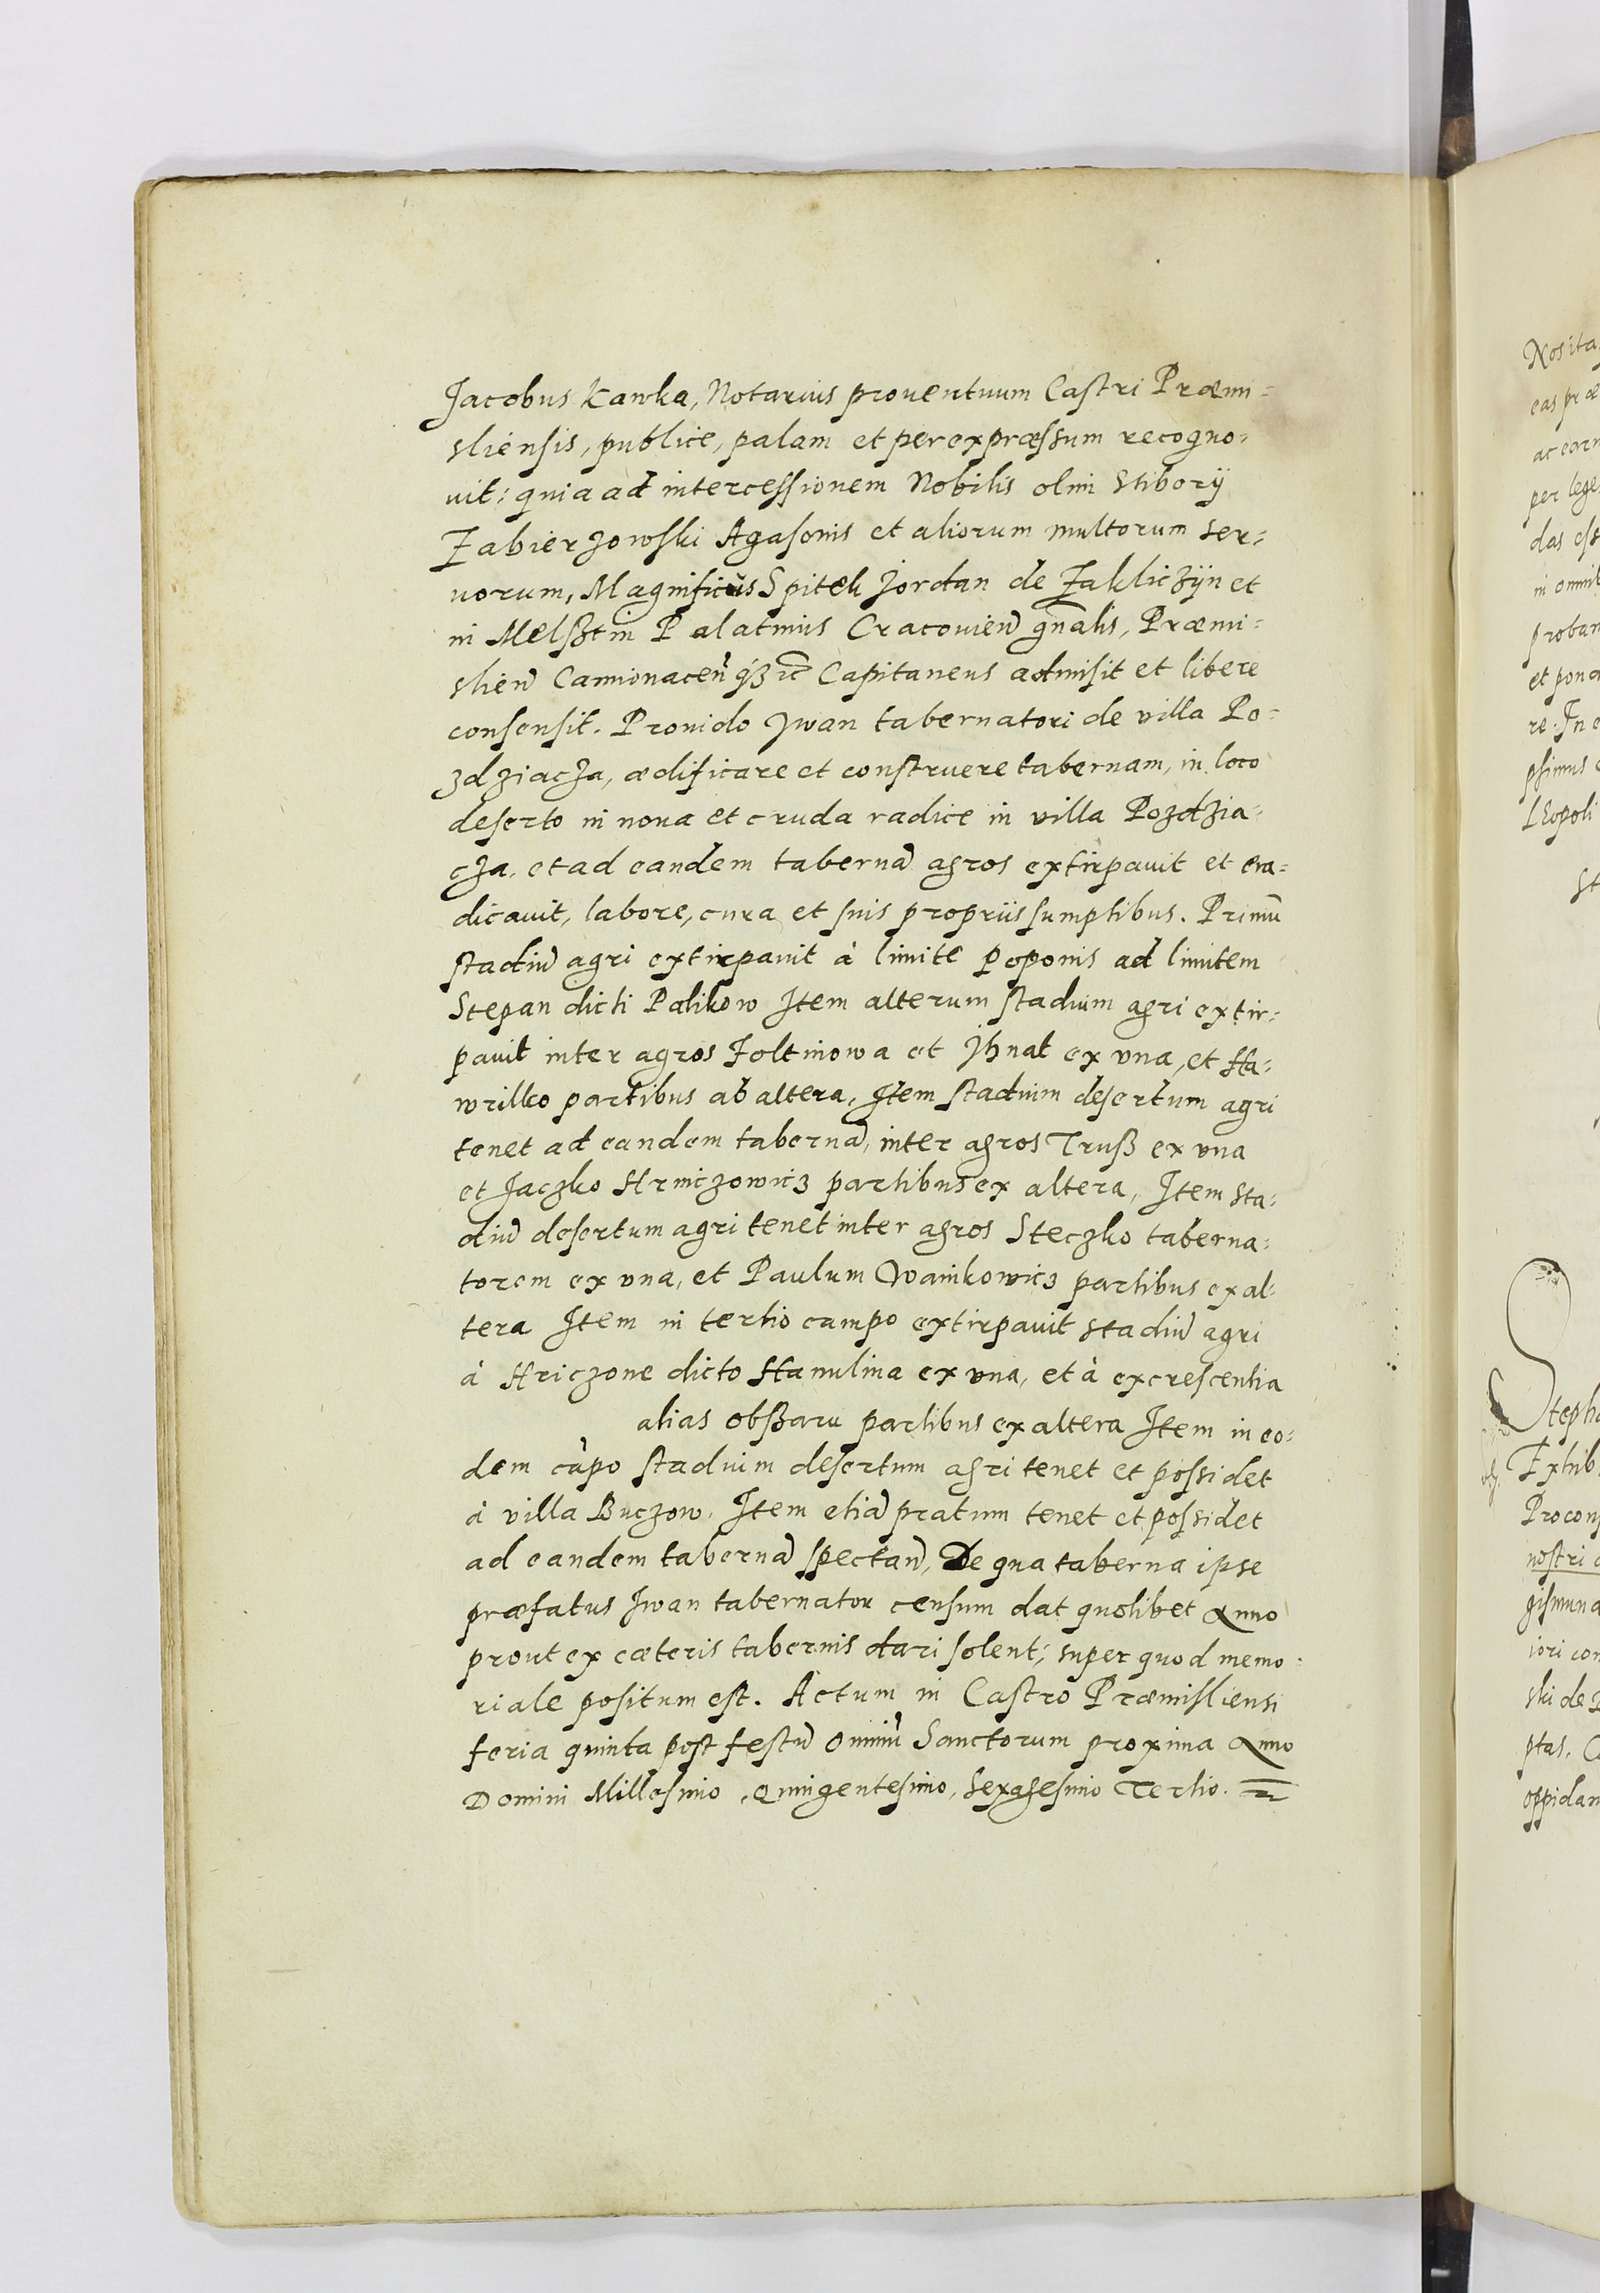 Jacobus Kawka, Notarius prouentuum Castri Præmi-
sliensis, publice, palam et per expræssum recogno-
uit: quia ad intercessionem Nobilis olim Stiborÿ
Zabierzowski Agasonis et aliorum multorum ser-
uorum, Magnificus Spitek Jordan de Zakliczÿn et
in Melsztin Palatinus Cracouien gnalis, Præmi-
slien Camionacen Capitaneus admisit et libere
consensit. Prouido Jwan tabernatori de villa Po-
zdziacza, ædificare et construere tabernam, in loco
deserto in noua et cruda radice in villa Pozdzia-
cza, et ad eandem taberna agros extirpauit et era-
dicauit, labore, cura et suis propriis sumptibus. Primu
stadiu agri extirpauit à limite Poponis ad limitem
Stepan dicti Palikow Item alterum stadium agri extir-
pauit inter agros Foltinowa et Jhnat ex vna, et Ha-
wrilko partibus ab altera, Item stadium desertum agri
tenet ad eandem taberna, inter agros Truß ex vna
et Jaczko Hriniczowicz partibus ex altera, Item Sta-
diu desertum agri tenet inter agros Steczko taberna-
torem ex vna, et Paulum Wainkowicz partibus ex al-
tera Item in tertio campo extirpauit stadiu agri
à Hriczone dicto Hanulina ex vna, et à excrescentia
alias obßaru partibus ex altera Item in eo-
dem capo stadium desertum agri tenet et possidet
à villa Buczow. Item etia pratum tenet et possidet
ad eandem taberna spectan, De qua taberna ipse
præfatus Jwan tabernator censum dat quolibet Anno
prout ex cæteris tabernis dari solent; super quod memo-
riale positum est. Actum in Castro Præmisliensi
feria quinta post festu Omniu Sanctorum proxima Anno
Domini Millesimo, Quingentesimo, Sexagesimo Tertio.
Nos ita
eas præ
per lege
das ess
in omnib
proban
et pona
re. In
Leopoli
St
Stepha
Extrib
Procons
nostri
gismuna
iori con
ski de
ptas, C
oppidan